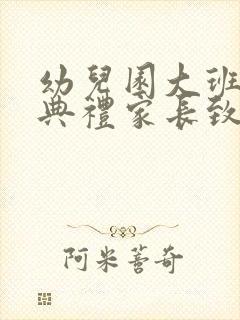 幼兒園大班
典禮家長致
阿米善奇